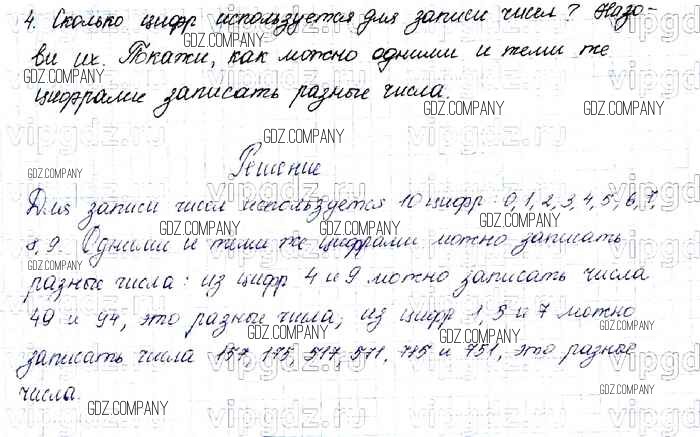 4. Сколько цифр используется для записи чисел? Назо-
ви их. Покажи, как можно одними и теми же
цифрами записать разные числа.
Решение
Для записи чисел используется 10 цифр: 0, 1, 2, 3, 4, 5, 6, 7,
8, 9. Одними и теми же цифрами можно записать
разные числа: из цифр 4 и 9 можно записать числа
49 и 94, это разные числа; из цифр 1, 5 и 7 можно
записать числа 157, 175, 517, 571, 715 и 751, это разные
числа.
GDZ.COMPANY
vipgdz.ru